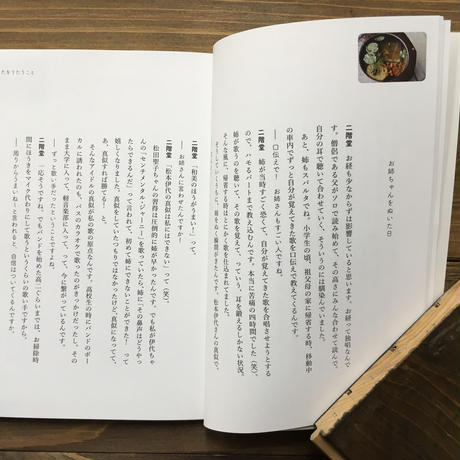 お姉ちゃんをぬいた日
二階堂　お経も少なからずは影響していると思います。お経って独唱なんで
す。僧侶である父がソロで読み始めて、その高さにみんな合わせて読んで、
自分の耳で聴いて合わせていく、そういうのには馴染んでいました。
あと、姉もスパルタでね。小学生の頃、祖父母の家に帰省する時、移動中
の車内でずっと自分が覚えてきた歌を口伝えで教えてくるんです。
── 口伝えで！　お姉さんもすごい人ですね。
二階堂　姉が当時すごく恐くて、自分が覚えてきた歌を合唱させようとする
ので、ハモるパートまで教え込むんです。本当に苦痛の四時間でした（笑）。
姉が歌うのを聴いて、その歌を覚えて、っていう、耳を鍛えるしかない状況。
そんな風に、帰省する時はとにかく歌を仕込まれてました。
そうしていくうちに、姉をぬく瞬間がきたんです。松本伊代さんの真似で。
二階堂　「和美のほうがうまい！」って。
── お姉さんに言わせたんですか！
二階堂　「松本伊代の真似は私にはできない」って（笑）。
松田聖子ちゃんの習得は圧倒的に姉がいいんです。でも私が伊代ちゃ
んの「センチメンタル・ジャーニー」を歌っていたら、姉に「その鼻声はどうやっ
たらできるんだ」って言われて。初めて姉にできないことができた！　って
嬉しくなりました。真似をしていたつもりではなかったけど、真似になってて、
あ、真似すれば勝てる！　と。
そんなアイドルの真似が私の歌の原点なんです。高校生の時にバンドのボー
カルに誘われたのも、バスのカラオケで歌ったのがきっかけだったし。その
まま大学に入って、軽音楽部に入って、って、今に繋がっているんです。
── ずっと歌い手だったということですよね。
二階堂　一応そうですね。でもバンドを始めた高一くらいまでは、お掃除時
間にほうきをマイク代わりにして歌うというくらいの歌い手ですから。
── 周りからうまい！　と言われると、自信はついてくるんですか。